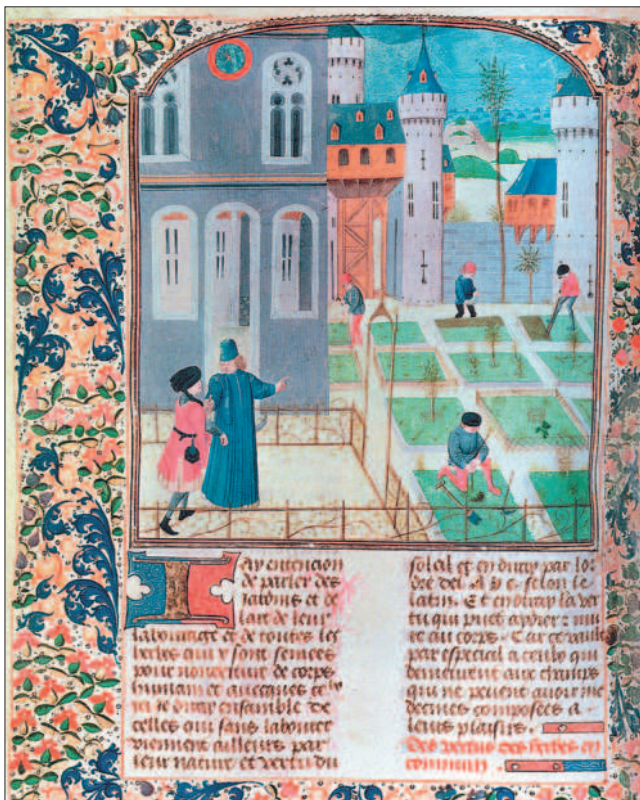 Iay entencion
de parler des
jardins et de
lart de leur
labourage et de toutes les
herbes qui y sont semees
pour nourreture de corps
humain et avecques ce
je diray ensamble de
celles qui sans labourer
viennent ailleurs par
leur nature et vertu du
soleil et en diray par lor
dre del A B c selon le
latin. Et en diray la ver
tu qui puet aydier z nui
re au corps. Car ce vault
par especial a ceulx qui
demeurent aux champs
qui ne peuent avoir me
decines composees a
leurs plaisirs.
Des vertus des herbes en
commun.